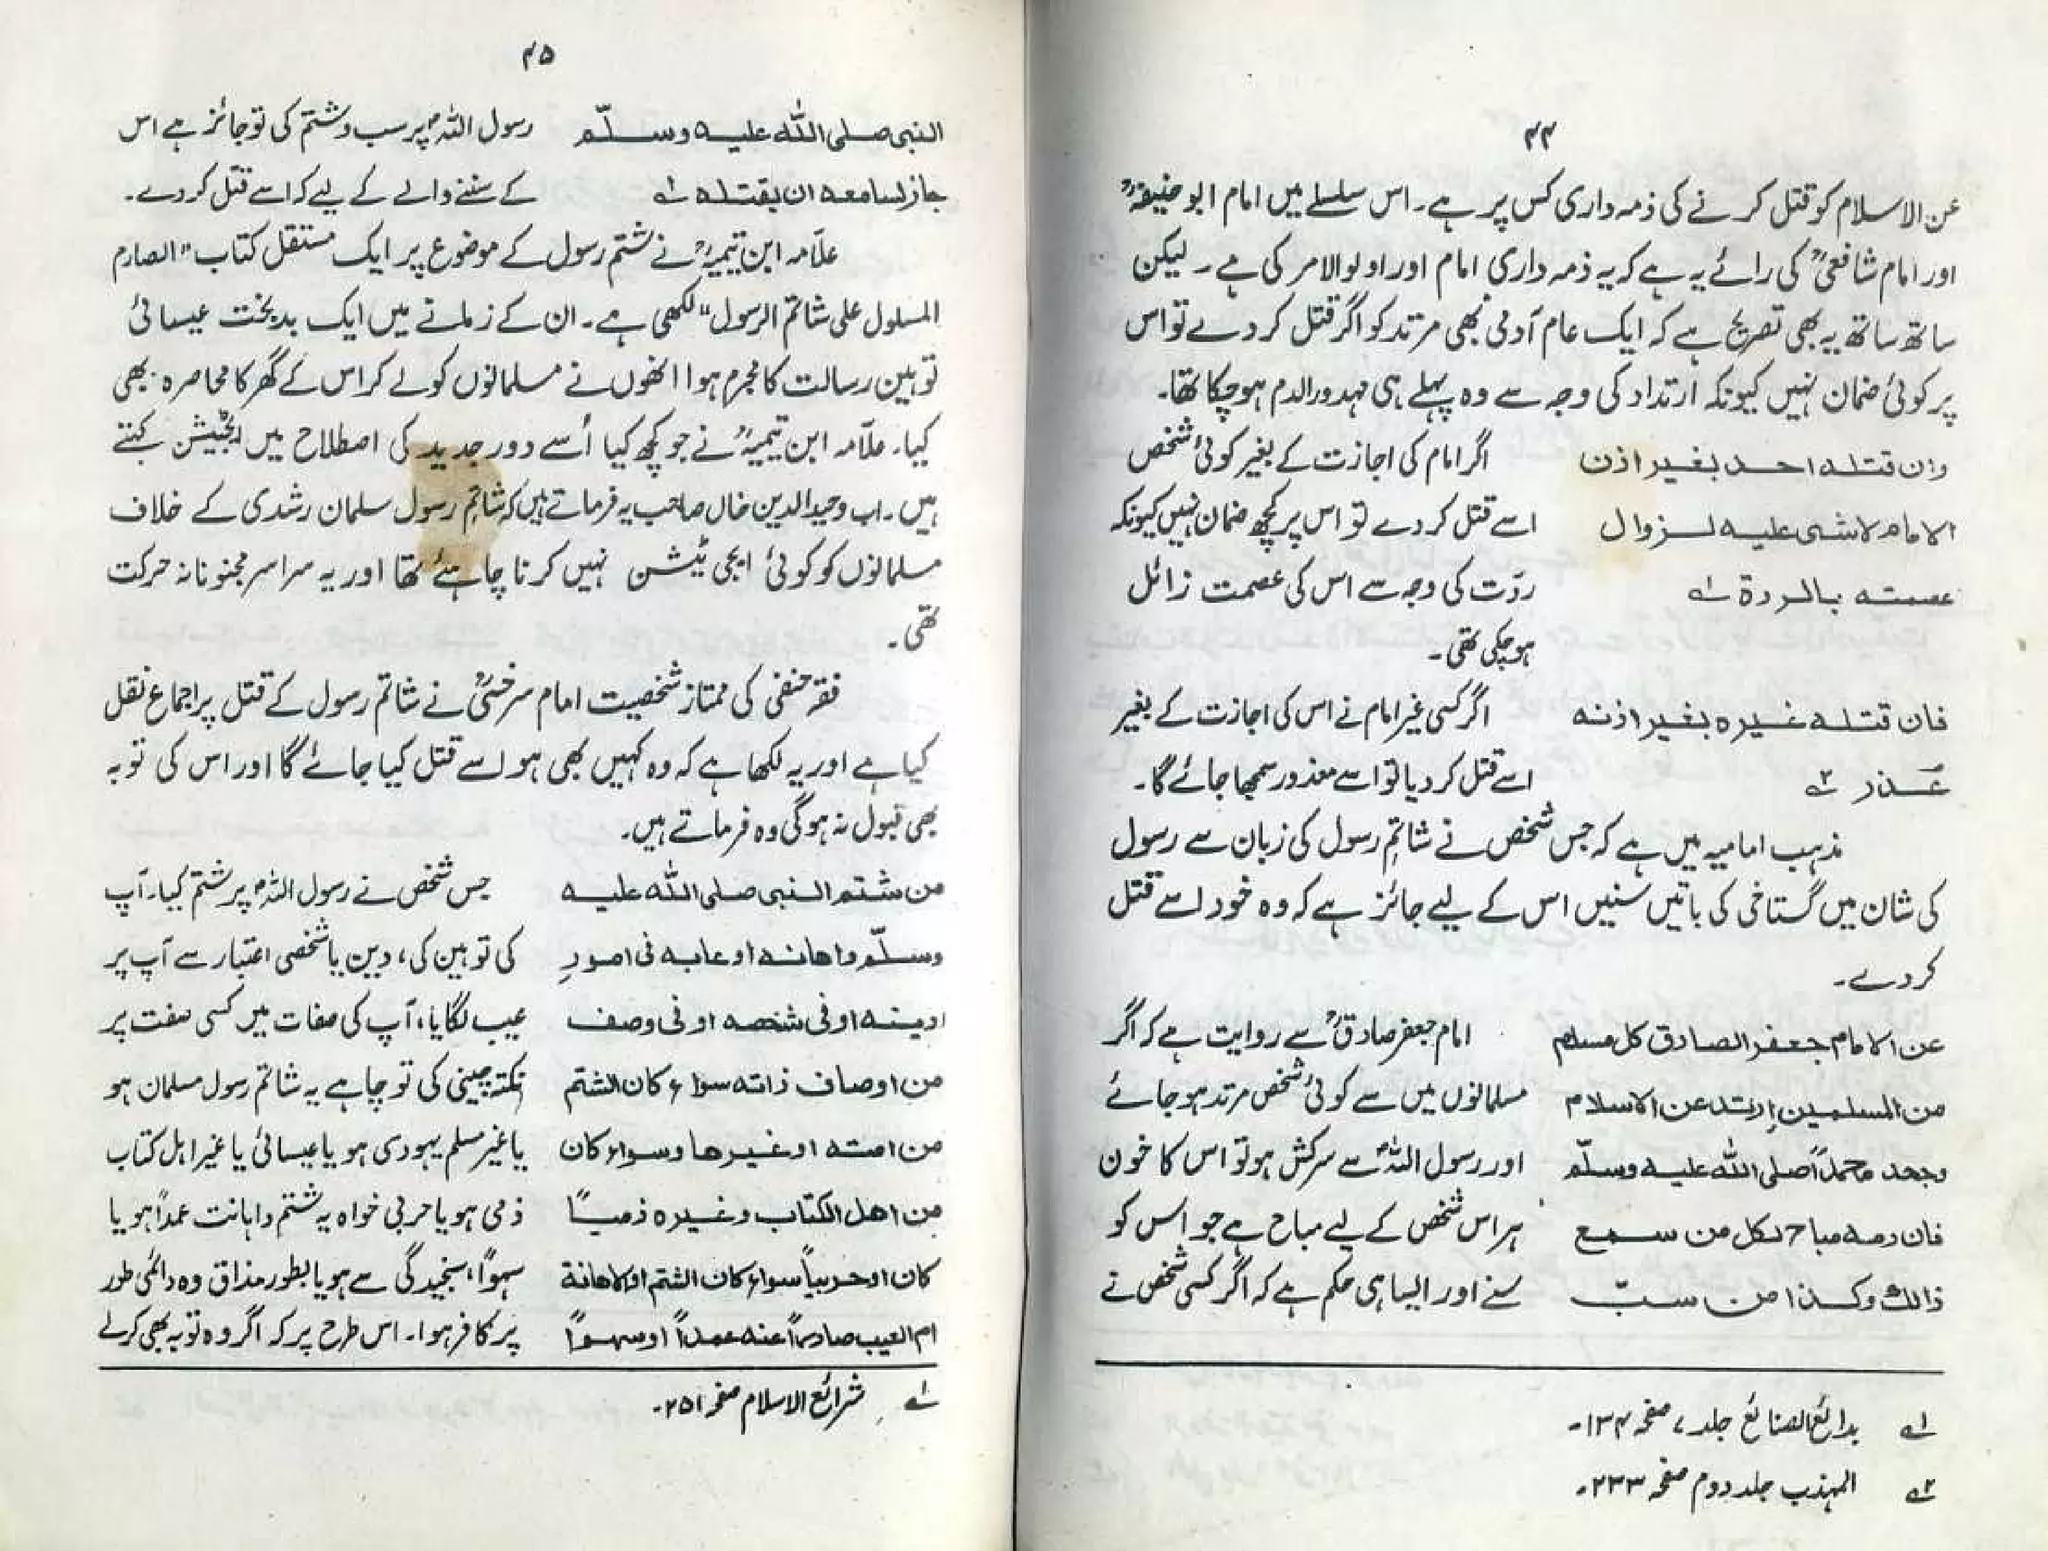 ۴۴
عن الاسلام کو قتل کرنے کی ذمہ داری کس پر ہے۔ اس سلسلے میں امام ابو حنیفہؒ
اور امام شافعیؒ کی رائے یہ ہے کہ یہ ذمہ داری امام اور اولوالامر کی ہے۔ لیکن
ساتھ ساتھ یہ بھی تصریح ہے کہ ایک عام آدمی بھی مرتد کو اگر قتل کر دے تو اس
پر کوئی ضمان نہیں کیونکہ ارتداد کی وجہ سے وہ پہلے ہی مہدورالدم ہو چکا تھا۔
وان قتله احد بغیر اذن اگر امام کی اجازت کے بغیر کوئی شخص
الامام لاشی علیه لـزوال اسے قتل کر دے تو اس پر کچھ ضمان نہیں کیونکہ
عصمته بالردة ۱؎ ردّت کی وجہ سے اس کی عصمت زائل
ہو چکی تھی۔
فان قتله غیره بغیر اذنه اگر کسی غیر امام نے اس کی اجازت کے بغیر
عُذر ۲؎ اسے قتل کر دیا تو اسے معذور سمجھا جائے گا۔
مذہب امامیہ میں ہے کہ جس شخص نے شاتم رسول کی زبان سے رسول
کی شان میں گستاخی کی باتیں سنیں اس کے لیے جائز ہے کہ وہ خود اسے قتل
کر دے۔
عن الامام جعفر الصادق کل مسلم امام جعفر صادقؒ سے روایت ہے کہ اگر
من المسلمین ارتد عن الاسلام مسلمانوں میں سے کوئی شخص مرتد ہو جائے
وجحد محمداً صلی الله علیه وسلّم اور رسول اللہؐ سے سرکش ہو تو اس کا خون
فان دمه مباح لکل من سمع ہر اس شخص کے لیے مباح ہے جو اس کو
ذالك وکذا من سبّ سنے اور ایسا ہی حکم ہے کہ اگر کسی شخص نے
۱؎ بدائع الصنائع جلد ۷ صفحہ ۱۳۴۔
۲؎ المہذب جلد دوم صفحہ ۲۳۳۔
۴۵
النبی صلی الله علیه وسلّم رسول اللہؐ پر سب و شتم کی تو جائز ہے اس
جاز لسامعه ان یقتله ۱؎ کے سننے والے کے لیے کہ اسے قتل کر دے۔
علّامہ ابن تیمیہؒ نے شتم رسول کے موضوع پر ایک مستقل کتاب "الصارم
المسلول علی شاتم الرسول" لکھی ہے۔ ان کے زمانے میں ایک بدبخت عیسائی
توہین رسالت کا مجرم ہوا انھوں نے مسلمانوں کو لے کر اس کے گھر کا محاصرہ بھی
کیا۔ علّامہ ابن تیمیہؒ نے جو کچھ کیا اُسے دور جدید کی اصطلاح میں ایجٹیشن کہتے
ہیں۔ اب وحیدالدین خاں صاحب یہ فرماتے ہیں کہ شاتمِ رسول سلمان رشدی کے خلاف
مسلمانوں کو کوئی ایجی ٹیشن نہیں کرنا چاہئے تھا اور یہ سراسر مجنونانہ حرکت
تھی۔
فقہ حنفی کی ممتاز شخصیت امام سرخسیؒ نے شاتم رسول کے قتل پر اجماع نقل
کیا ہے اور یہ لکھا ہے کہ وہ کہیں بھی ہو اسے قتل کیا جائے گا اور اس کی توبہ
بھی قبول نہ ہوگی وہ فرماتے ہیں۔
من شتم النبی صلی الله علیه جس شخص نے رسول اللہؐ پر شتم کیا۔ آپ
وسلّم واهانه اوعابه فی امور کی توہین کی، دین یا شخصی اعتبار سے آپ پر
ادینه اوفی شخصه اوفی وصف عیب لگایا، آپ کی صفات میں کسی صفت پر
من اوصاف ذاته سواء کان الشتم نکتہ چینی کی تو چاہے یہ شاتم رسول مسلمان ہو
من امته اوغیرها وسواء کان یا غیر مسلم یہودی ہو یا عیسائی یا غیر اہل کتاب
من اهل الکتاب وغیره ذمیاً ذمی ہو یا حربی خواہ یہ شتم و اہانت عمداً ہو یا
کان اوحربیاً سواء کان الشتم اوالاهانة سہواً، سنجیدگی سے ہو یا بطور مذاق وہ دائمی طور
ام العیب صادراً عنه عمداً اوسهواً پر کافر ہوا۔ اس طرح پر کہ اگر وہ توبہ بھی کر لے
۱؎ شرائع الاسلام صفحہ ۲۵۱۔